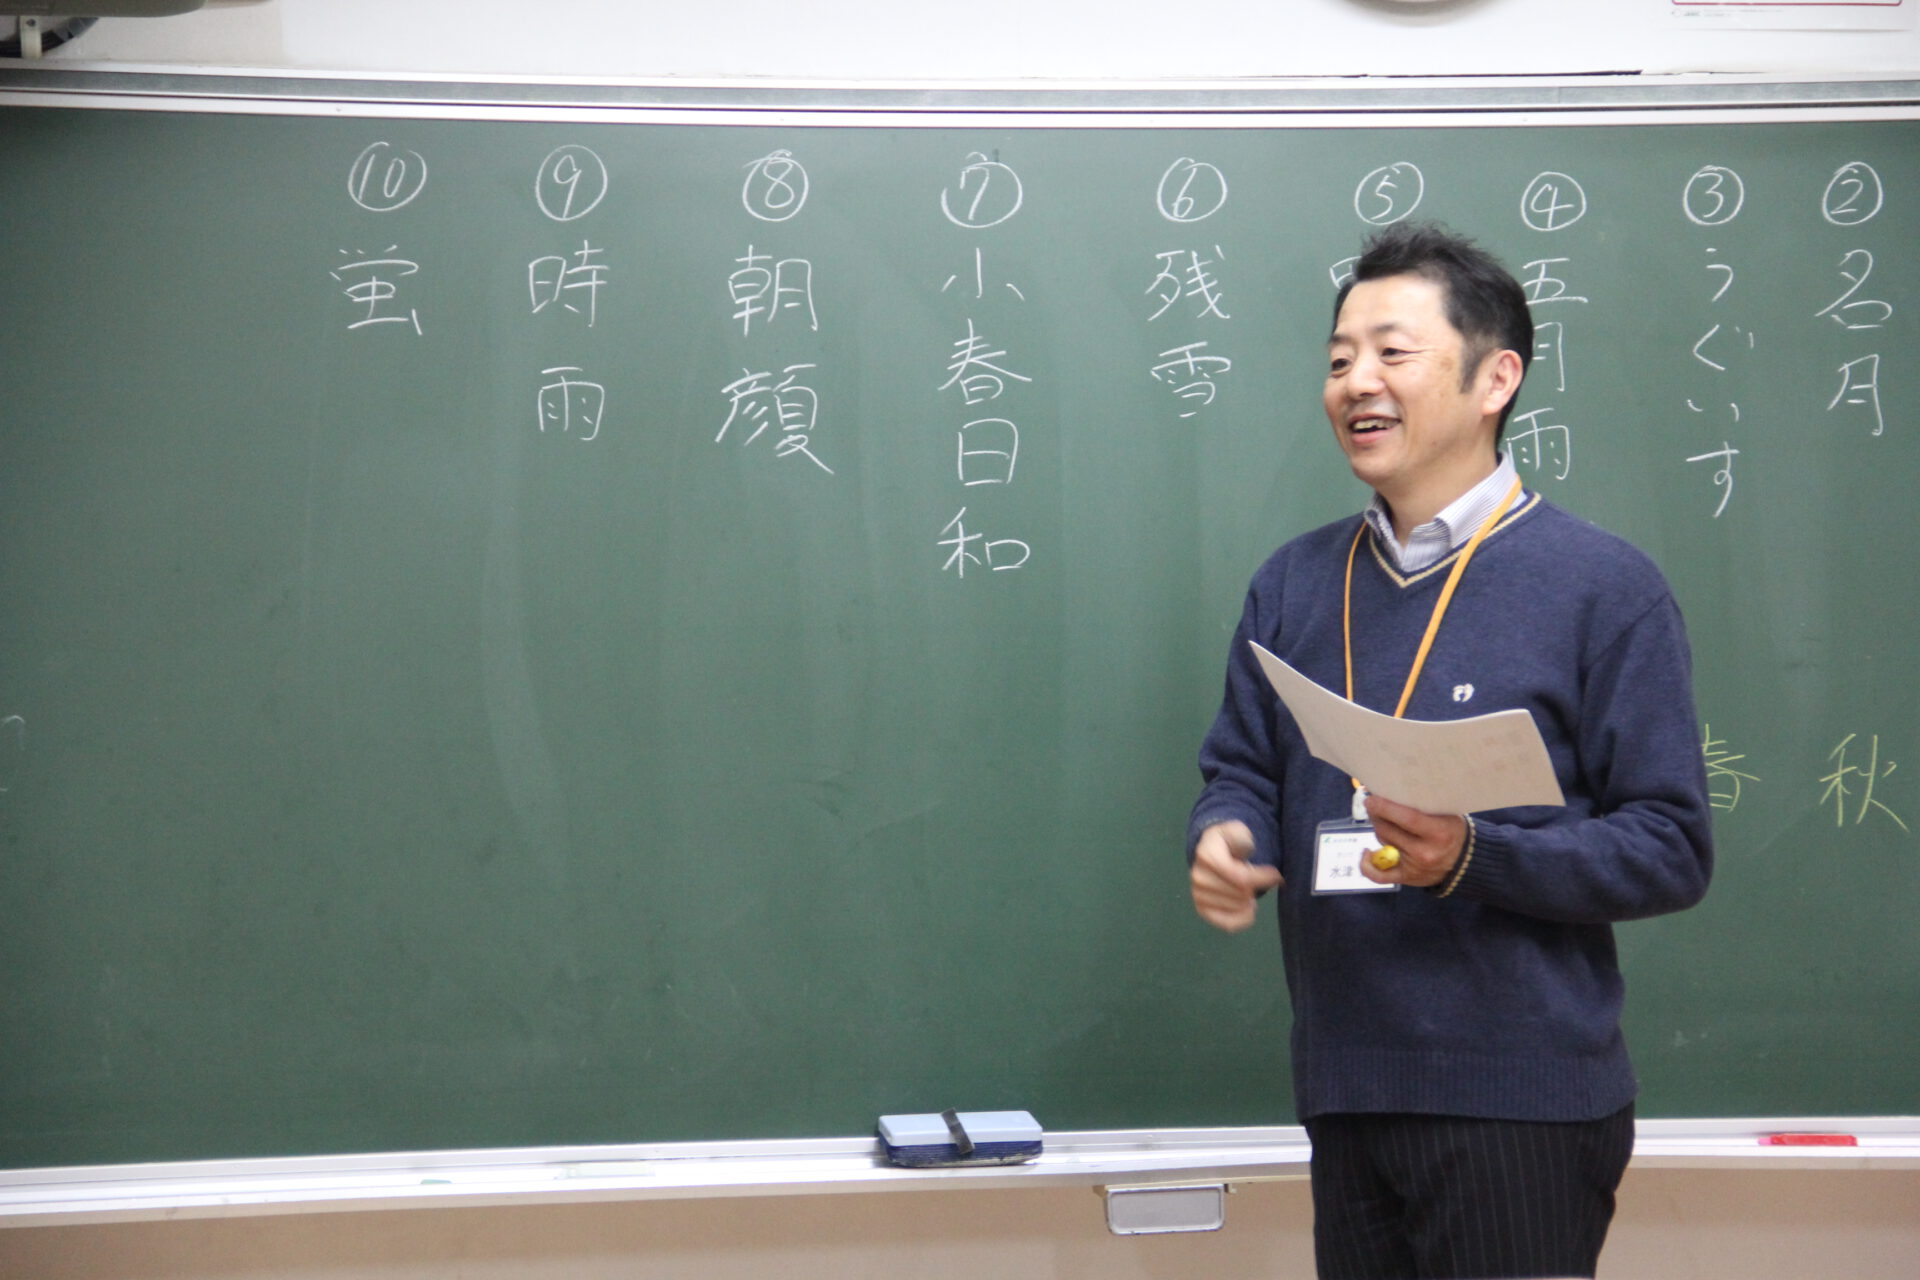 ② 名月
秋
③ うぐいす
春
④ 五月雨
⑤
⑥ 残雪
⑦ 小春日和
⑧ 朝顔
⑨ 時雨
⑩ 蛍
水津